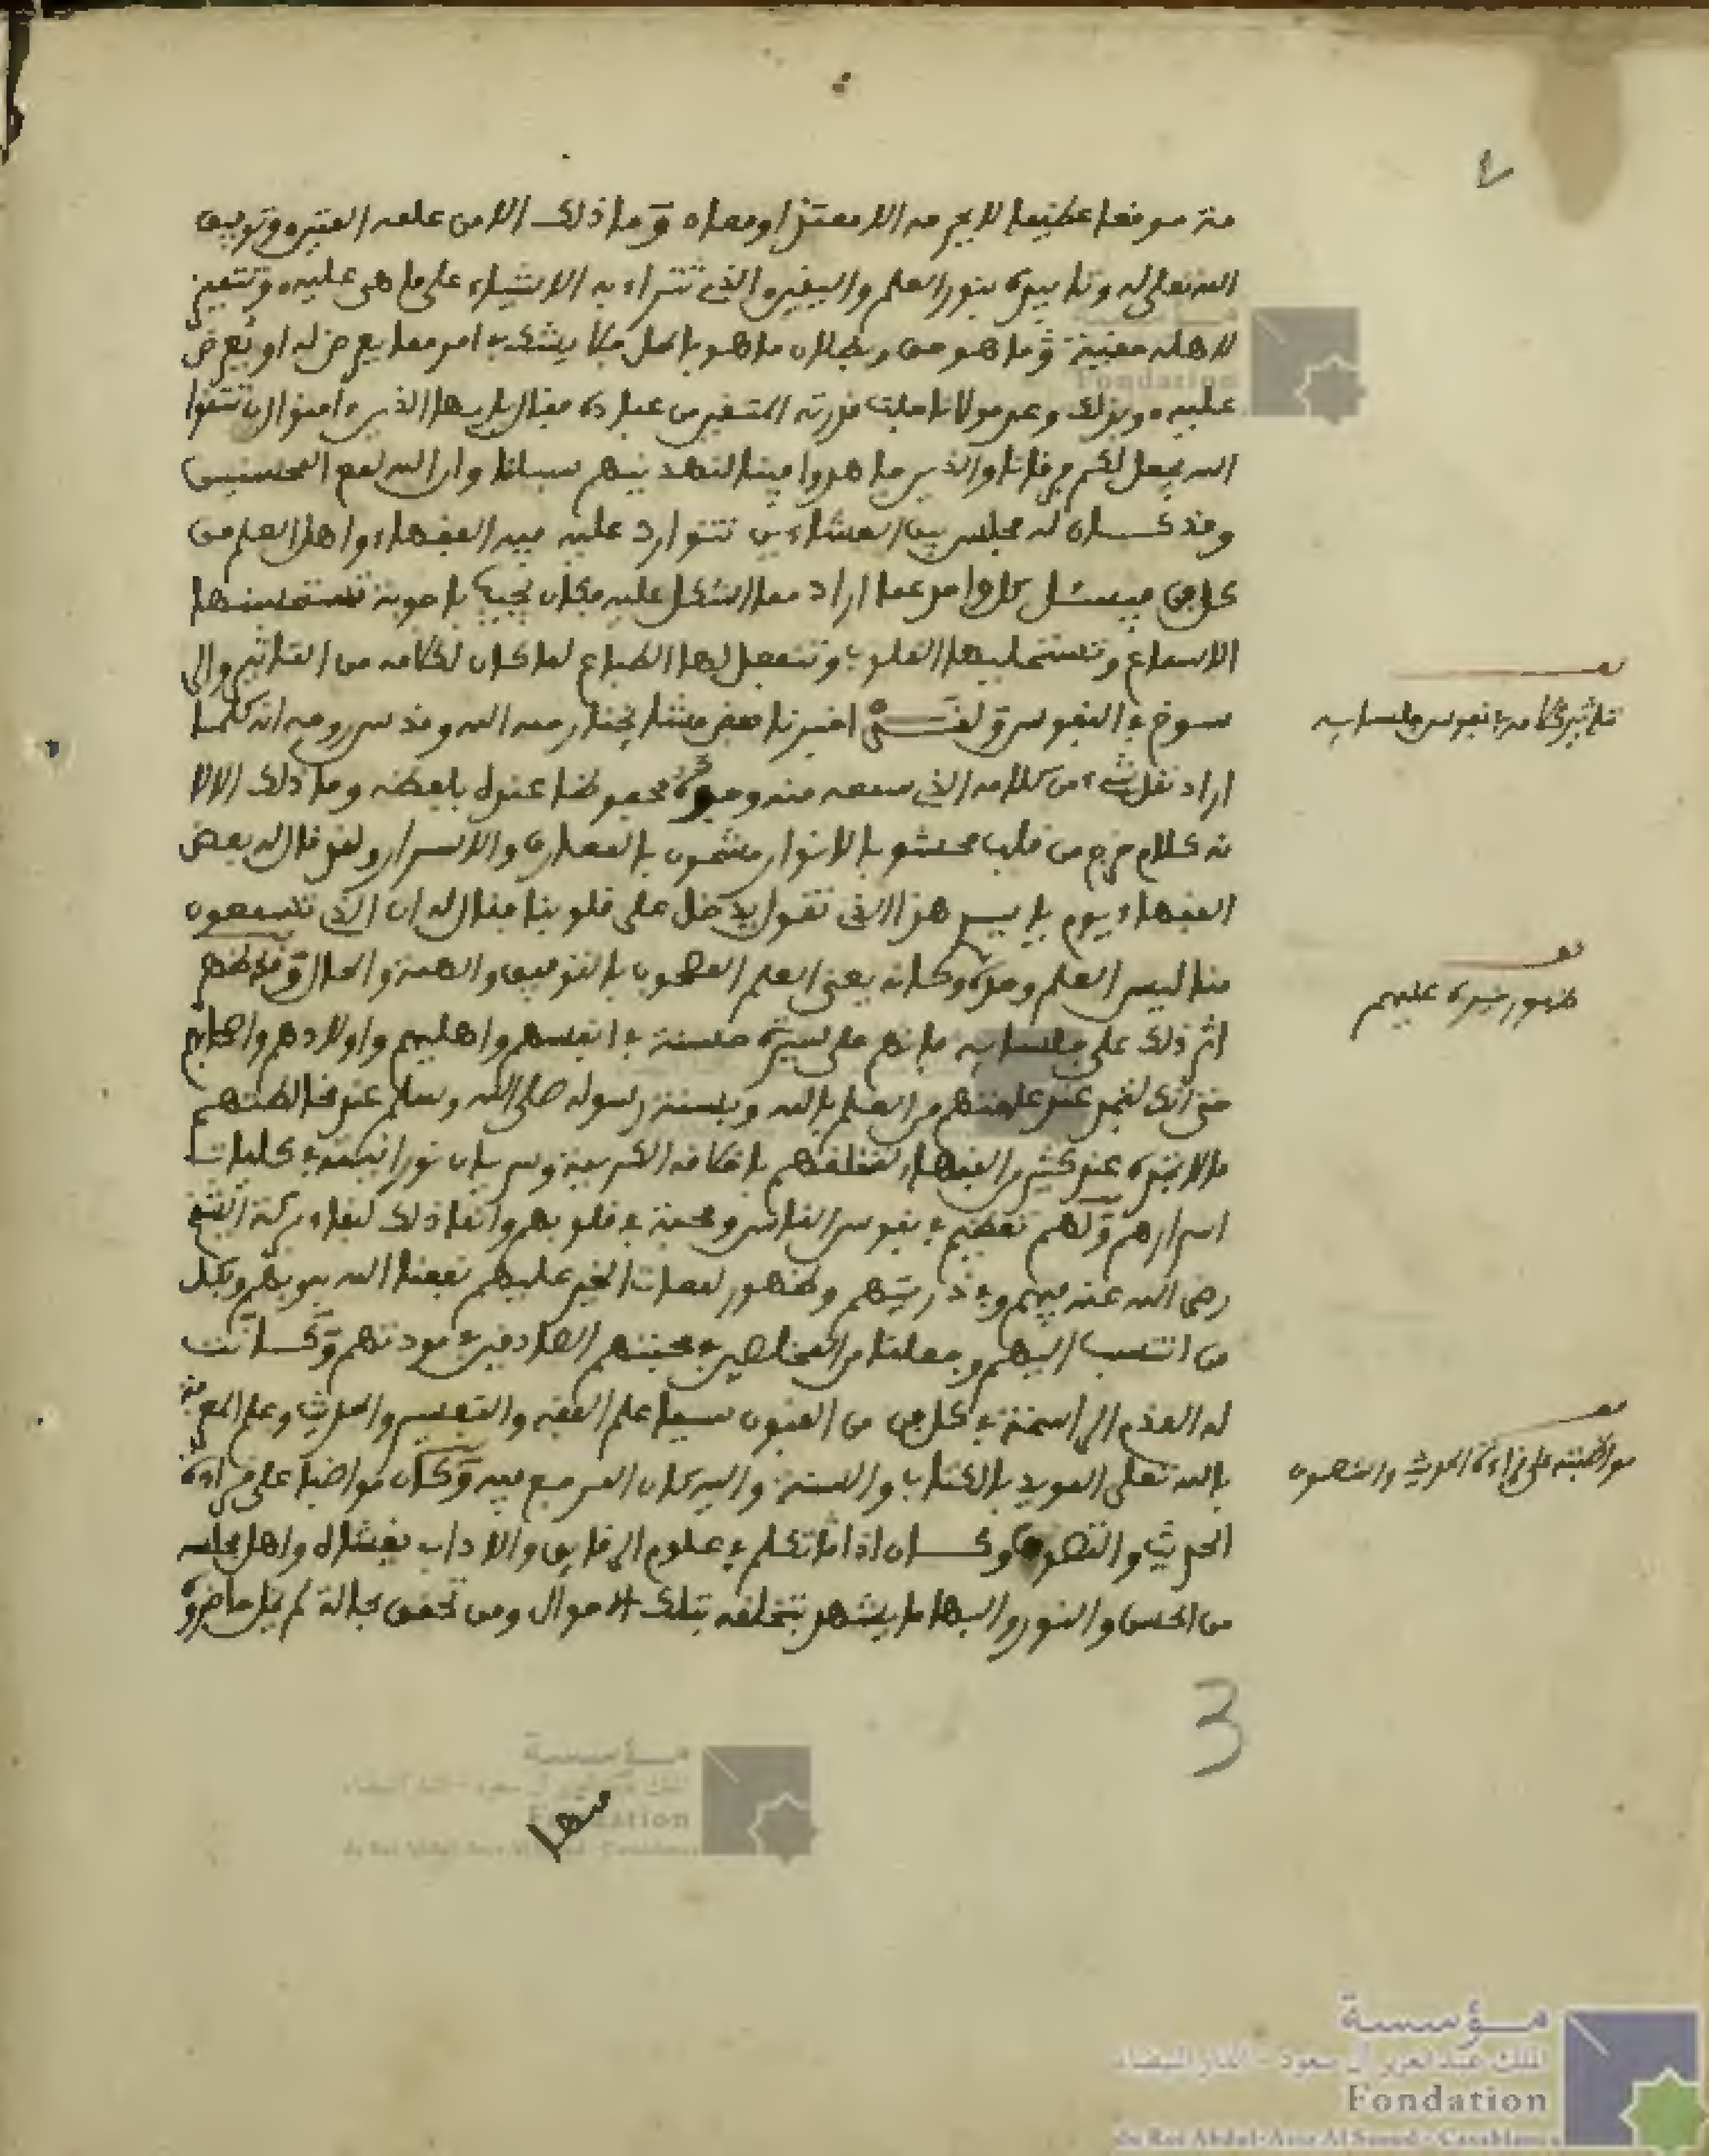 منه موقعا عظيما لا يحرمه الا
الله تعالى له وتاييده بنور العلم والبصيرة الذي تتراءا به الاشياء على ما هي عليه وتتميز
لاهله حقيقة ما هو حق وبطلان ما هو باطل فلا يشك في امر مما يعرض له او يعرض
عليه وبذلك وعد مولانا جلت قدرته المتقين من عباده فقال يايها الذين ءامنوا ان تتقوا
الله يجعل لكم فرقانا والذين جاهدوا فينا لنهدينهم سبلنا وان الله لمع المحسنين
وقد كان له مجلس بين العشاءين تتوارد عليه فيه الفقهاء واهل العلم من
كل فن فيسئل كل واحد عما اراد مما اشكل عليه فكان يجيب باجوبة تستحسنها
الاسماع وتستحليها القلوب وتنفعل لها الطباع لما كان لكلامه من التاثير والر
سوخ في النفوس ولقد اخبرنا بعض مشايخنا رحمه الله وقدس روحه انه كلما
اراد نقل شيء من كلامه الذي سمعه منه وجده محفوظا عنده بلفظه وما ذلك الا لا
نه كلام خرج من قلب محشو بالانوار مشحون بالمعارف والاسرار ولقد قال له بعض
الفقهاء يوم يا سيدي هذا الذي تقول يدخل على قلوبنا فقال له ان الذي تسمعون
منا ليس العلم وحده وكانه يعني العلم المصحوب بالتوفيق والهمة والحال وقد ظهر
اثر ذلك على جلسايه فانهم على سيرة حسنة في انفسهم واهليهم واولادهم واصحابهم
حتى انك لتجد عند عامتهم من العلم بالله وبسنة رسوله صلى الله وسلم عند مخالطتهم
ما لا تجده عند كثير من الفقهاء لتخلقهم باخلاقه الكريمة وسريان نورانيته في كليات
اسرارهم ولهم تعظيم في نفوس الناس ومحبة في قلوبهم وانما ذلك لبقاء بركة الشيخ
رضي الله عنه فيهم وفي ذريتهم وظهور لمعات الخير عليهم نفعنا الله بهم وبكل
من انتسب اليهم وجعلنا من المخلصين في محبتهم الصادقين في مودتهم وكانت
له القدم الراسخة في كل فن من الفنون سيما علم الفقه والتفسير والحديث وعلم المعرفة
بالله تعلى المويد بالكتاب والسنة واليه كان المرجع فيه وكان مواضبا على قراءة
الحديث والتصوف وكان اذا تكلم في علوم الرقايق والاداب يغشاه واهل مجلسه
من الحسن والنور والبها ما يشهد بتخلقه بتلك الاحوال ومن تحقق بحالة لم يخل حاضروه
تاثير كلامه في نفوس جلسايه
ظهور خيره عليهم
مواظبته على قراءة الحديث والتصوف
3
مؤسسة
الملك عبد العزيز آل سعود - الدار البيضاء
Fondation
du Roi Abdul-Aziz Al Saoud - Casablanca